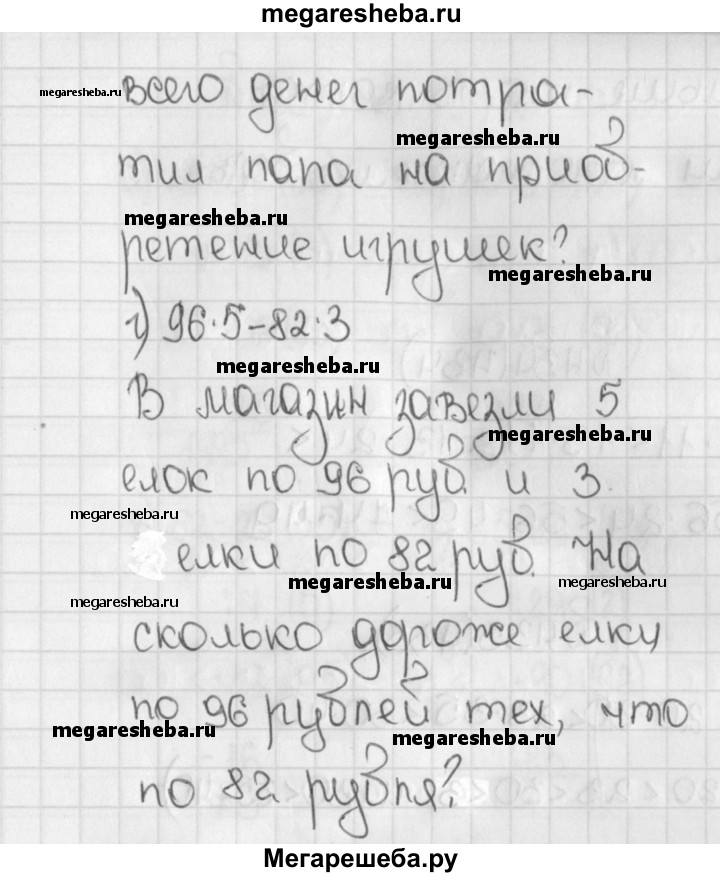 megaresheba.ru
megaresheba.ru всего денег потра-
megaresheba.ru
тил папа на приоб-
megaresheba.ru
ретение игрушек?
megaresheba.ru
г) 96·5-82·3
megaresheba.ru
В магазин завезли 5
megaresheba.ru
елок по 96 руб и 3
megaresheba.ru
елки по 82 руб. На
megaresheba.ru megaresheba.ru
megaresheba.ru
сколько дороже елку
по 96 рублей тех, что
megaresheba.ru megaresheba.ru
по 82 рубля?
Мегарешеба.ру